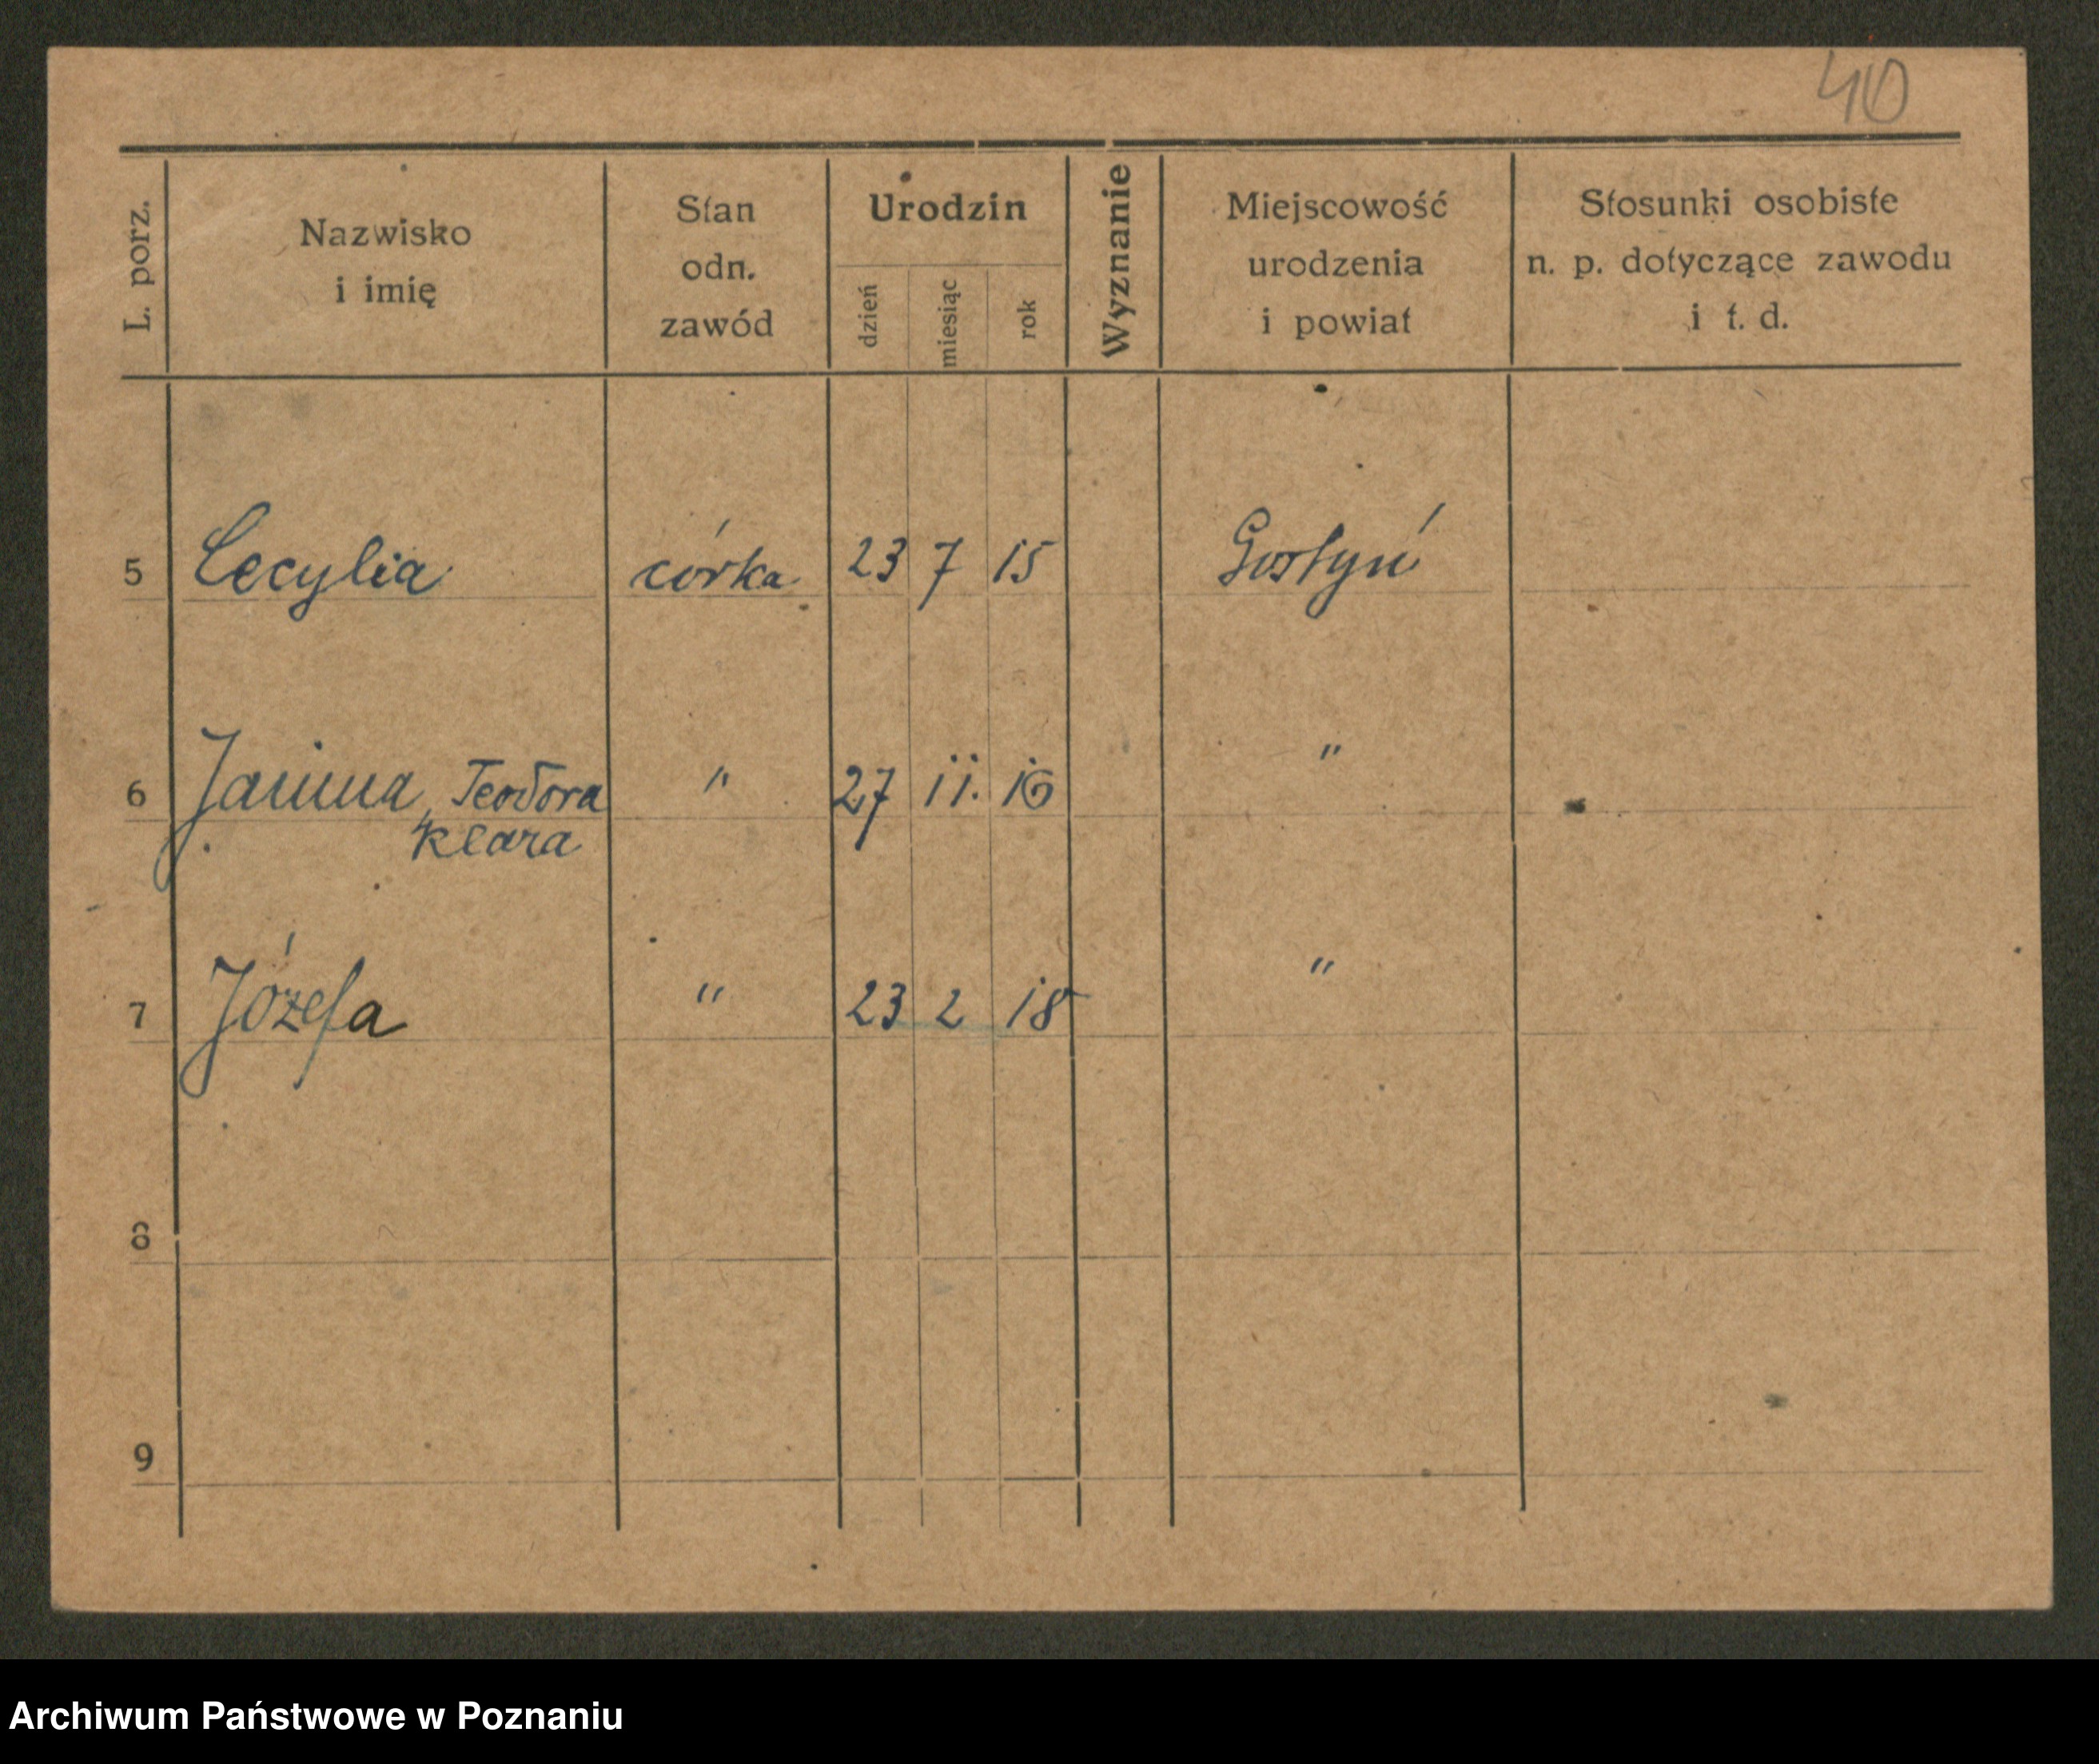 40
L. porz.
Nazwisko
i imię
Stan
odn.
zawód
Urodzin
dzień
miesiąc
rok
Wyznanie
Miejscowość
urodzenia
i powiat
Stosunki osobiste
n. p. dotyczące zawodu
i t. d.
5 Cecylia córka 23 7 15 Gostyń
6 Janina, Teodora " 27 11. 16 "
Klara
7 Józefa " 23 2 18 "
8
9
Archiwum Państwowe w Poznaniu